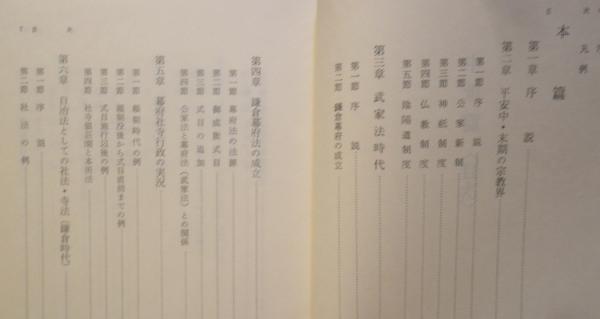 凡例
本篇
第一章 序説
第二章 平安中・末期の宗教界
第一節 序説
第二節 公家新制
第三節 神祇制度
第四節 仏教制度
第五節 陰陽道制度
第三章 武家法時代
第一節 序説
第二節 鎌倉幕府の成立
第四章 鎌倉幕府法の成立
第一節 幕府法の法源
第二節 御成敗式目
第三節 式目の追加
第四節 公家法と幕府法(武家法)との関係
第五章 幕府社寺行政の実況
第一節 頼朝時代の例
第二節 頼朝没後から式目直前までの例
第三節 式目施行以後の例
第四節 社寺領荘園と本所法
第六章 自治法としての社法・寺法(鎌倉時代)
第一節 序説
第二節 社法の例